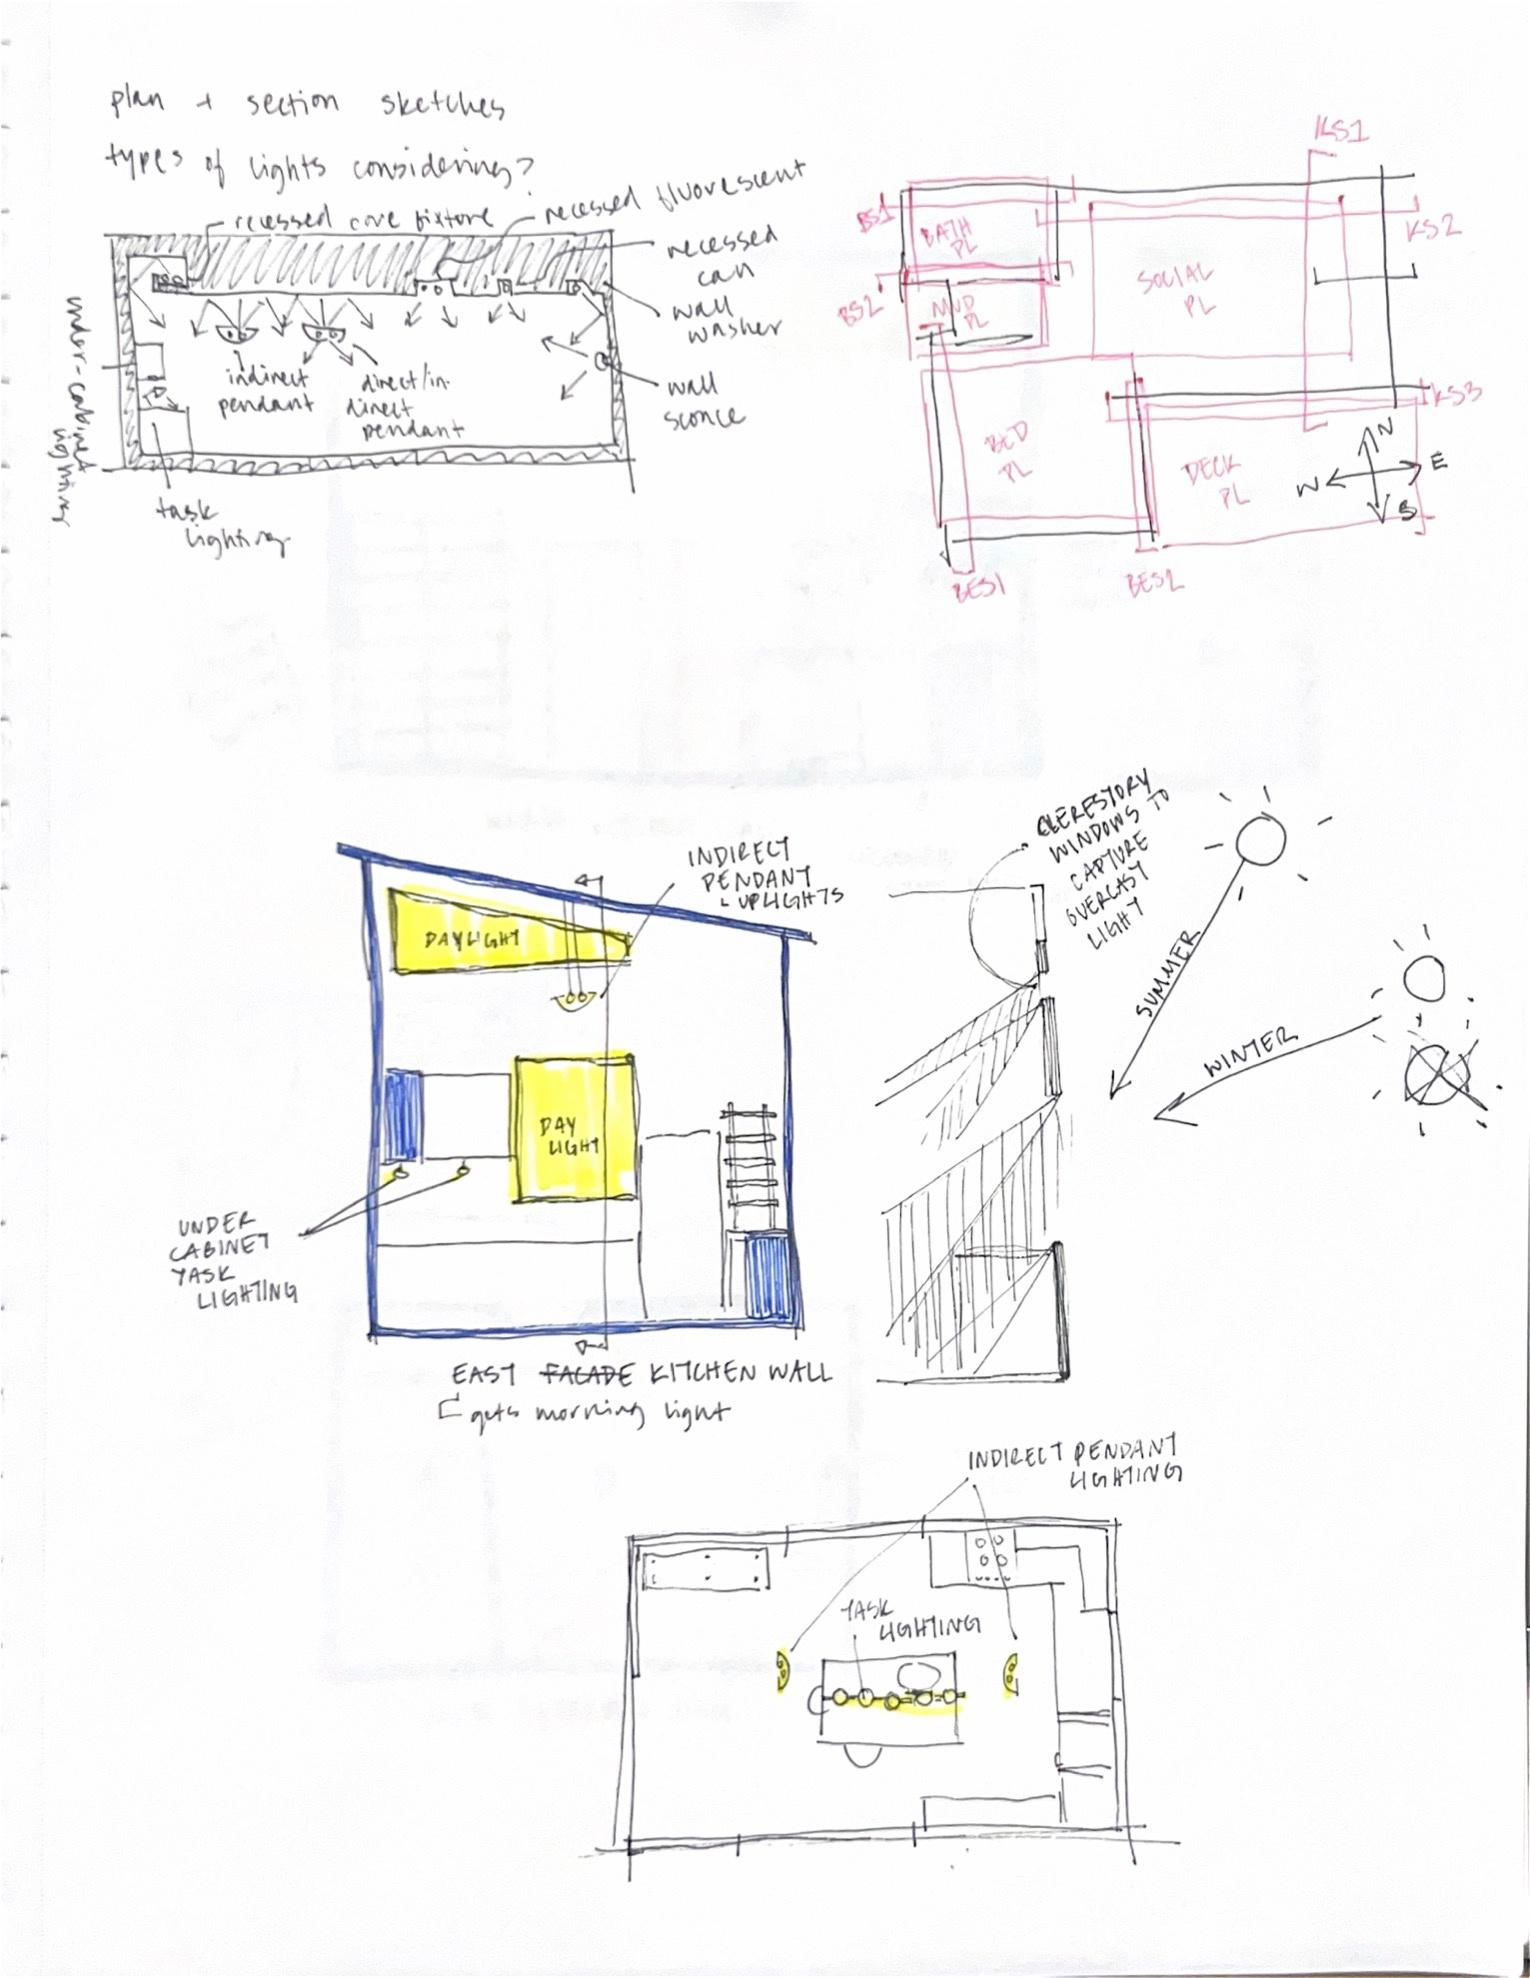 plan + section sketches
types of lights considering?
recessed cove fixture
recessed fluorescent
recessed
can
wall
washer
wall
sconce
indirect
pendant
direct/in-
direct
pendant
under-cabinet
lighting
task
lighting
KS1
KS2
KS3
BS1
BS2
BATH
PL
MUD
PL
SOCIAL
PL
BED
PL
DECK
PL
N
W
E
S
BES1
BES2
INDIRECT
PENDANT
UPLIGHTS
DAYLIGHT
DAY
LIGHT
UNDER
CABINET
TASK
LIGHTING
EAST FACADE KITCHEN WALL
gets morning light
CLERESTORY
WINDOWS TO
CAPTURE
OVERCAST
LIGHT
SUMMER
WINTER
INDIRECT PENDANT
LIGHTING
TASK
LIGHTING